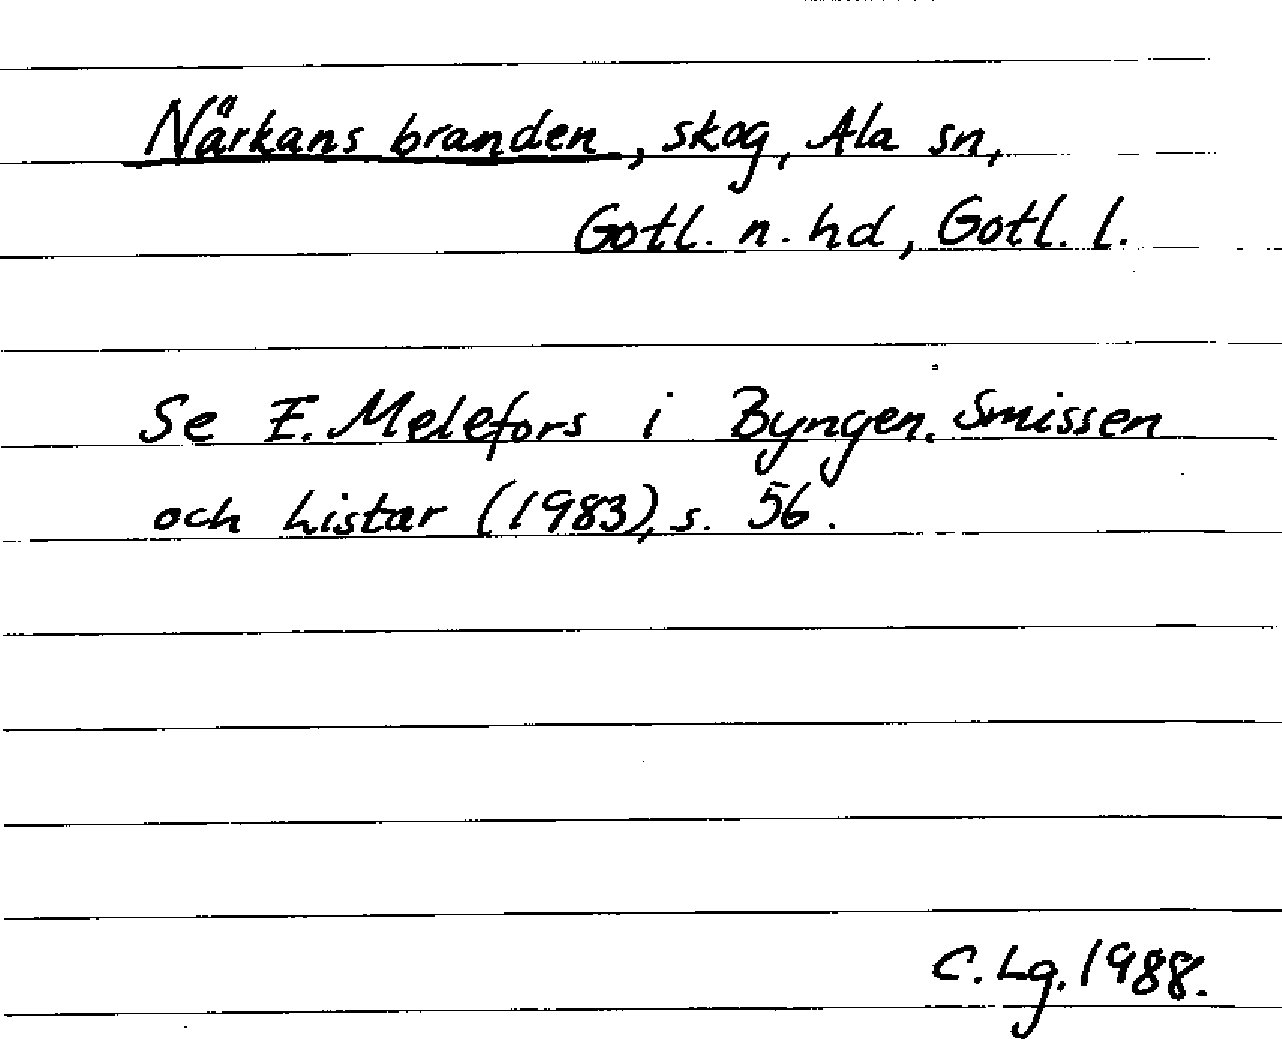 Närkans branden, skog, Ala sn,
Gotl. n. hd, Gotl. l.
Se E. Melefors i Byngen. Smissen
och Listar (1983), s. 56.
C. Lg. 1988.